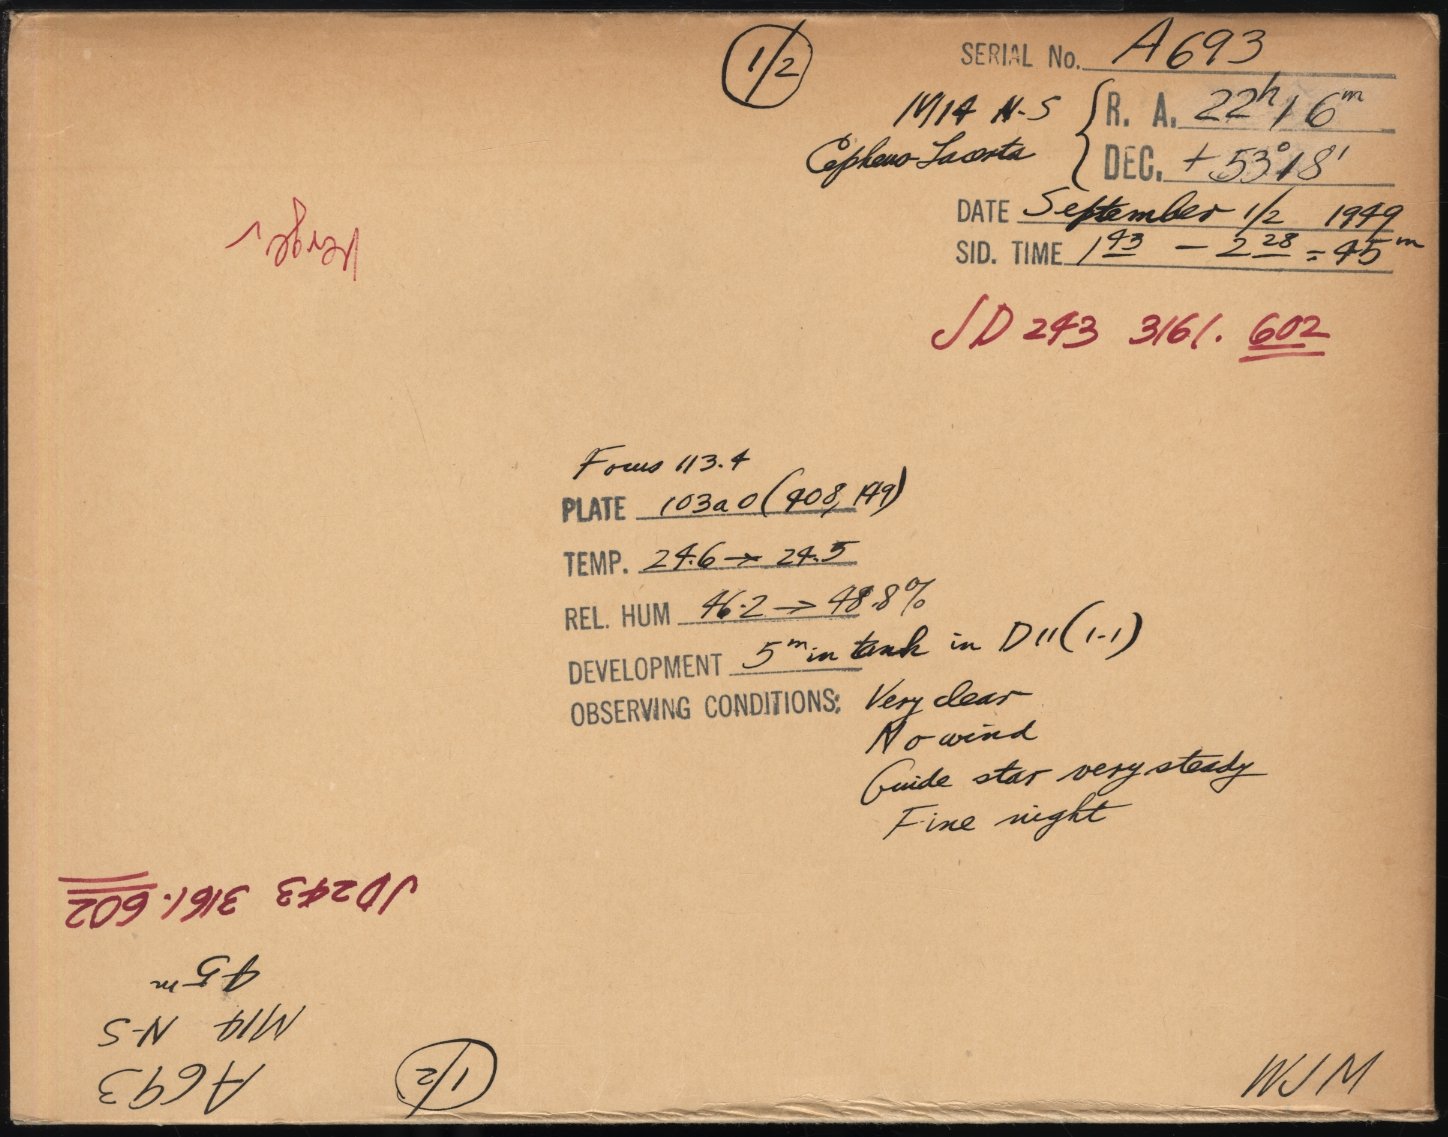 1/2
SERIAL No. A693
M14 N-S
R. A. 22h 16m
Cepheus-Lacerta
DEC. +53°18'
DATE September 1/2 1949
SID. TIME 1 43 – 2 28 = 45m
JD 243 3161.602
Focus 113.4
PLATE 103a O (408, 149)
TEMP. 24.6 → 24.5
REL. HUM 46.2 → 48.8%
DEVELOPMENT 5m in tank in D11 (1-1)
OBSERVING CONDITIONS: Very clear
No wind
Guide star very steady
Fine night
WJM
1/2
A693
M14 N-S
45m
JD 243 3161.602